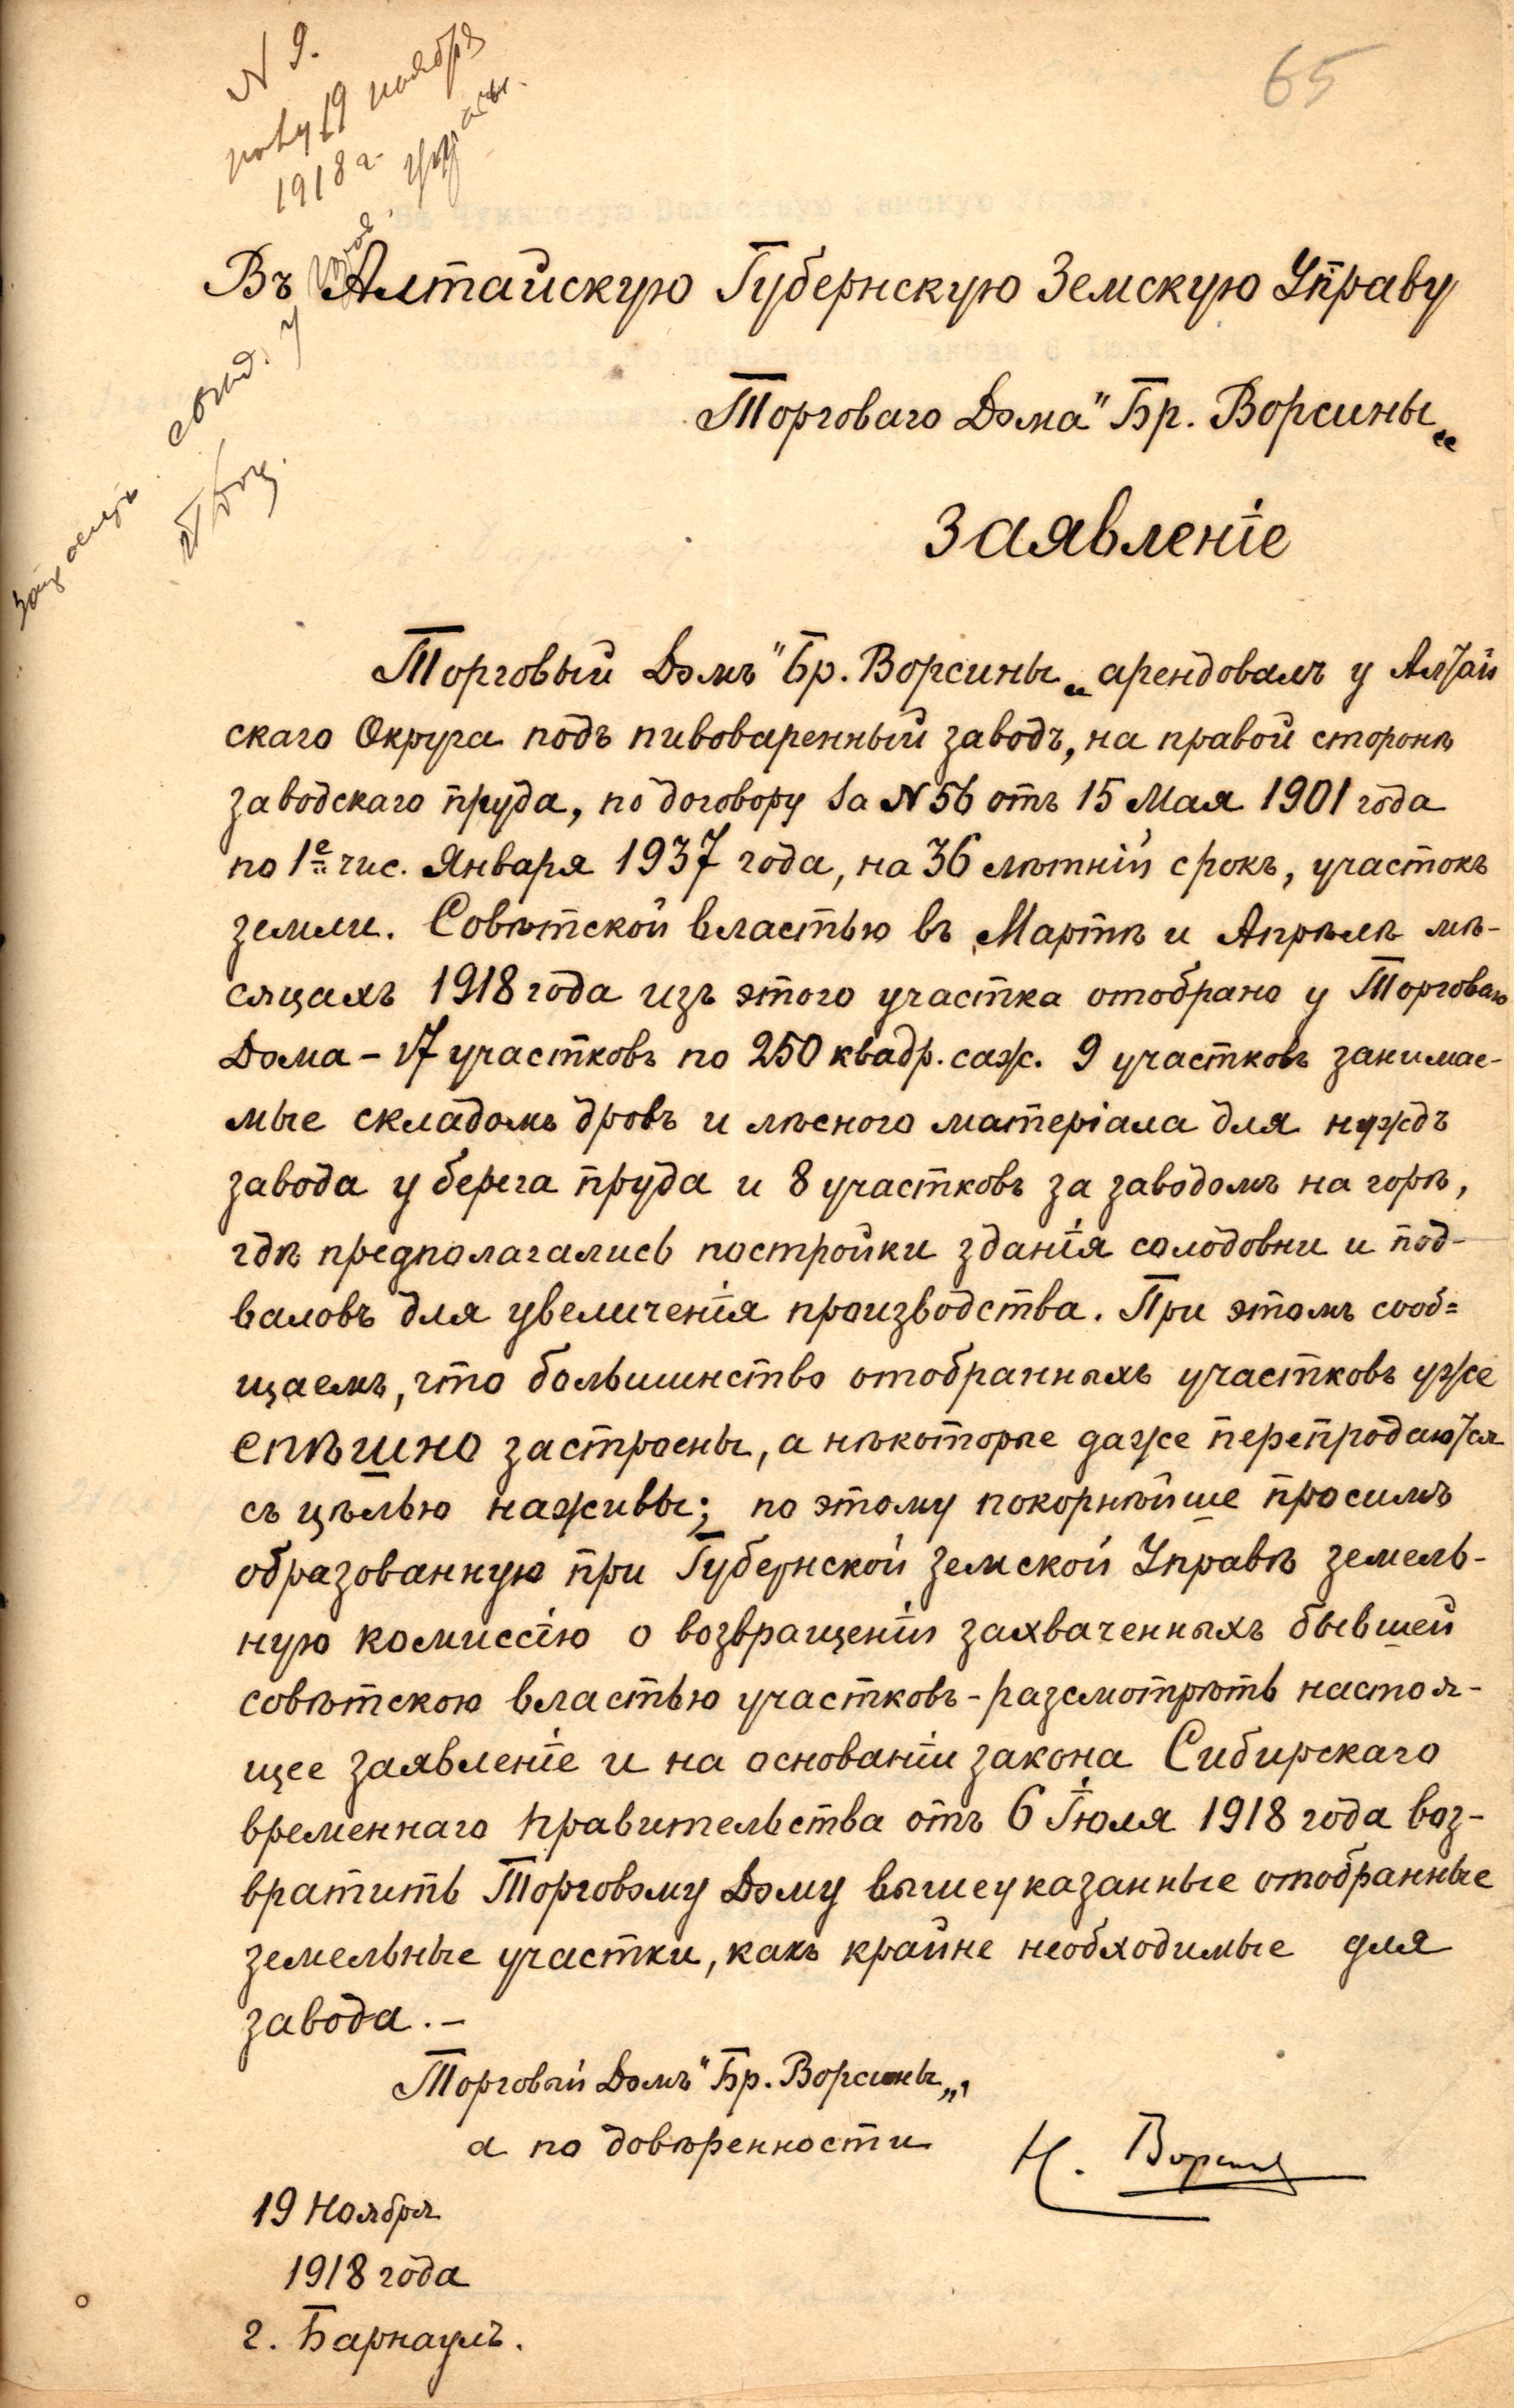 N 9.
19 ноября
1918 г.
65
Въ Алтайскую Губернскую Земскую Управу
Торговаго Дома "Бр. Ворсины„
Заявленіе
Торговый Домъ "Бр. Ворсины„ арендовалъ у Алтай
скаго Округа подъ пивоваренный заводъ, на правой сторонѣ
заводскаго пруда, по договору за N 56 отъ 15 Мая 1901 года
по 1е чис. Января 1937 года, на 36 лѣтній срокъ, участокъ
земли. Совѣтской властью въ Мартѣ и Апрѣлѣ мѣ-
сяцахъ 1918 года изъ этого участка отобрано у Торговаго
Дома - 17 участковъ по 250 квадр. саж. 9 участковъ занимае-
мые складомъ дровъ и лѣсного матеріала для нуждъ
завода у берега пруда и 8 участковъ за заводомъ на горѣ,
гдѣ предполагались постройки зданія солодовни и под-
валовъ для увеличенія производства. При этомъ сооб=
щаемъ, что большинство отобранныхъ участковъ уже
спѣшно застроены, а нѣкоторые даже перепродаются
съ цѣлью наживы; по этому покорнѣйше просимъ
образованную при Губернской Земской Управѣ земель-
ную комиссію о возвращеніи захваченныхъ бывшей
совѣтскою властью участковъ - разсмотрѣть настоя-
щее заявленіе и на основаніи закона Сибирскаго
временнаго правительства отъ 6 Іюля 1918 года воз-
вратить Торговому Дому вышеуказанные отобранные
земельные участки, какъ крайне необходимые для
завода.-
Торговый Домъ "Бр. Ворсины„,
а по довѣренности
Н. Ворсинъ
19 Ноября
1918 года
г. Барнаулъ.